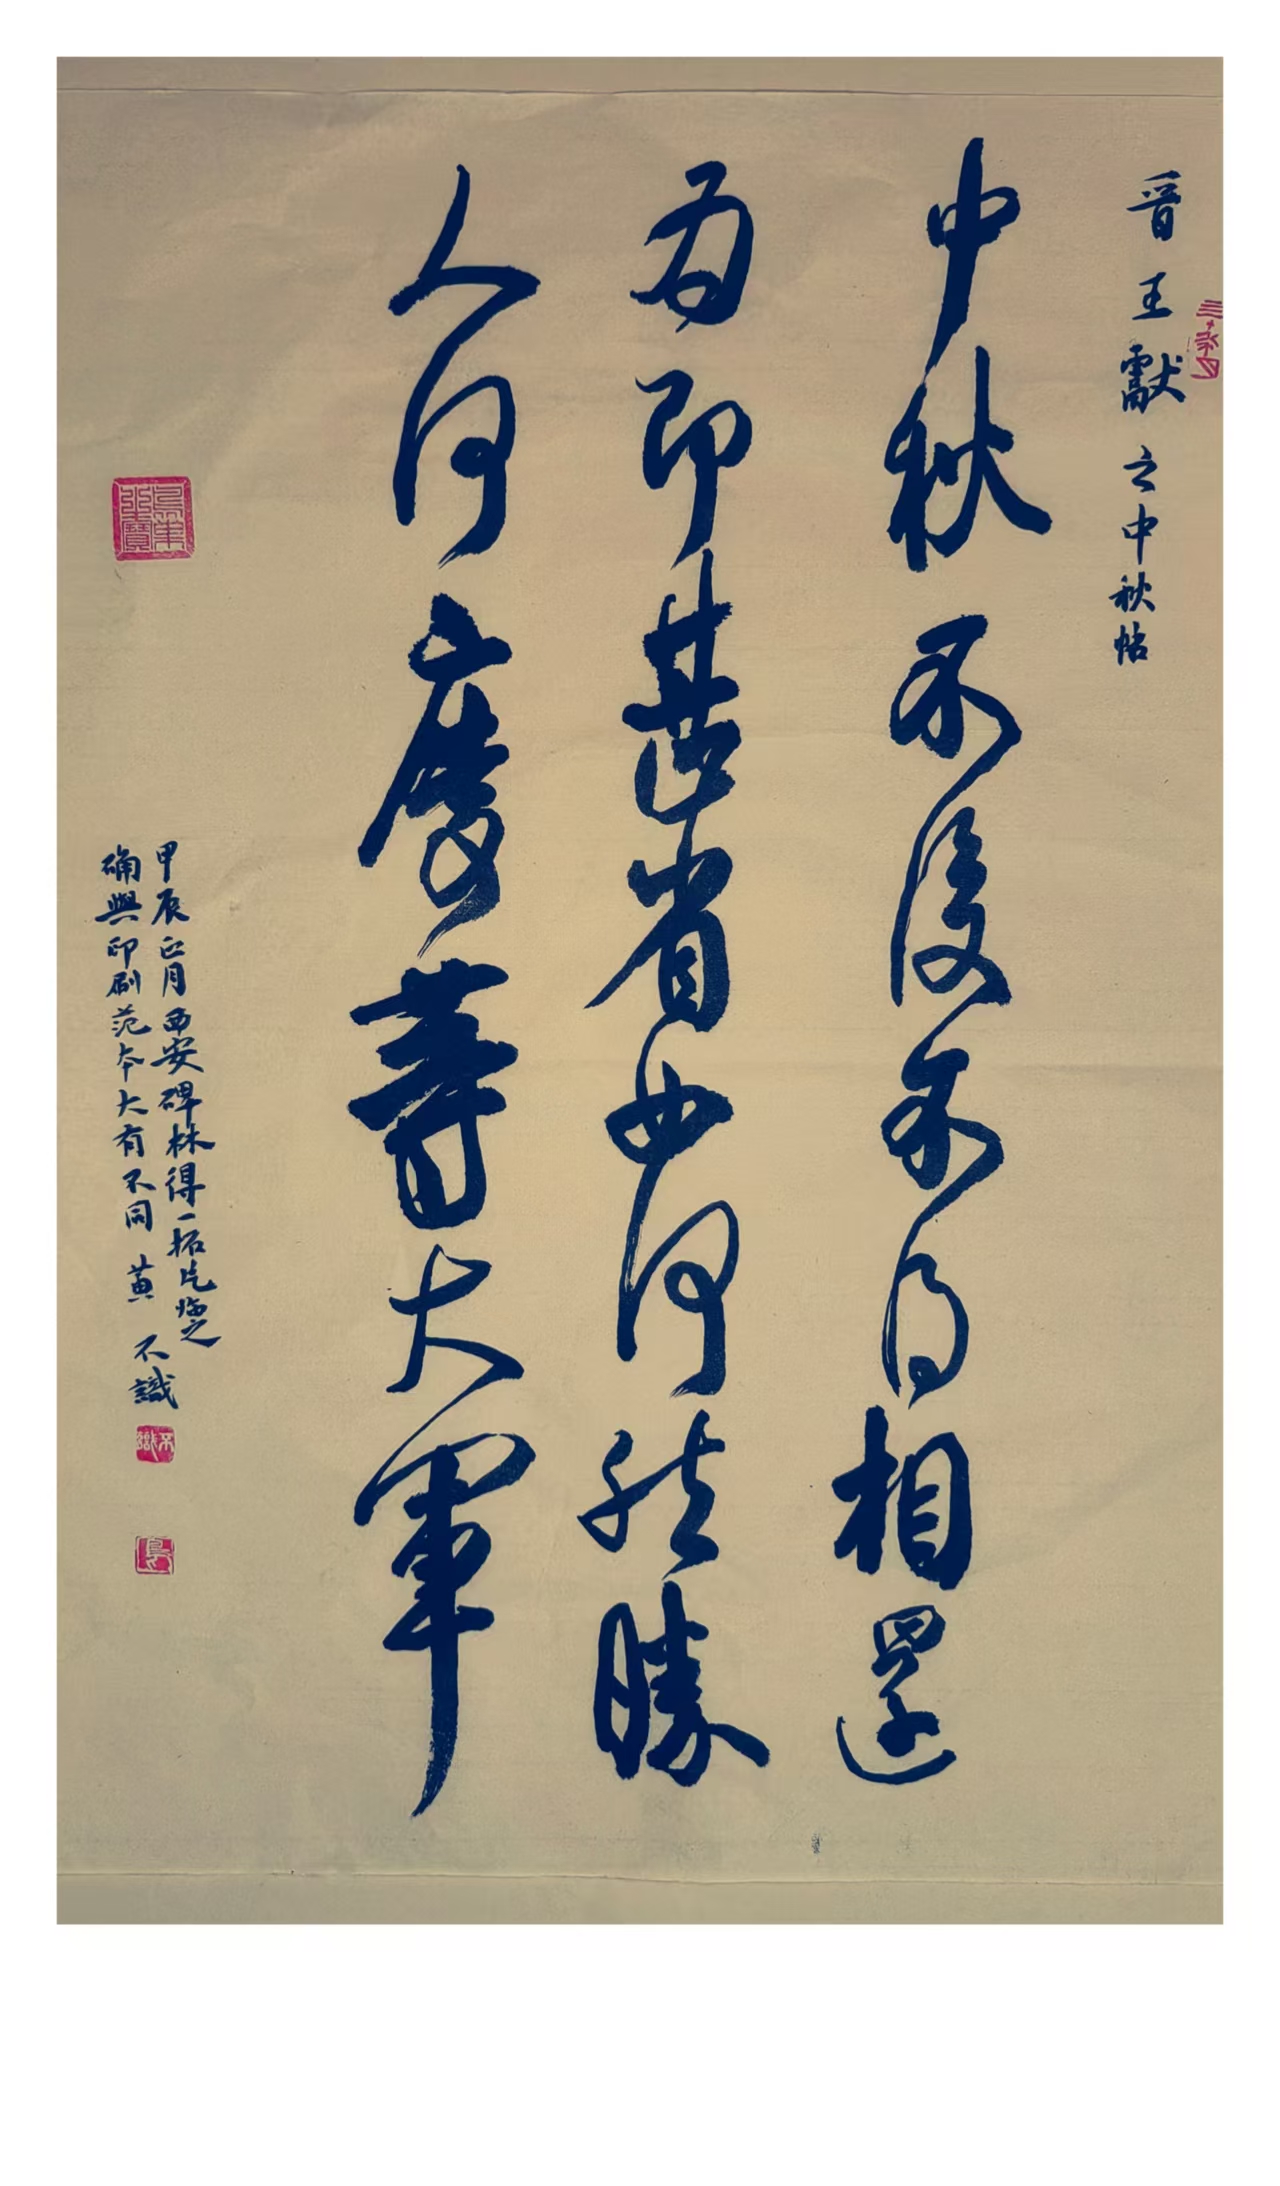 晋王獻之中秋帖
中秋不復不得相還
為即甚省如何然勝
人何慶等大軍
甲辰正月西安碑林得一拓片临之
确與印刷范本大有不同 黄不識
不識